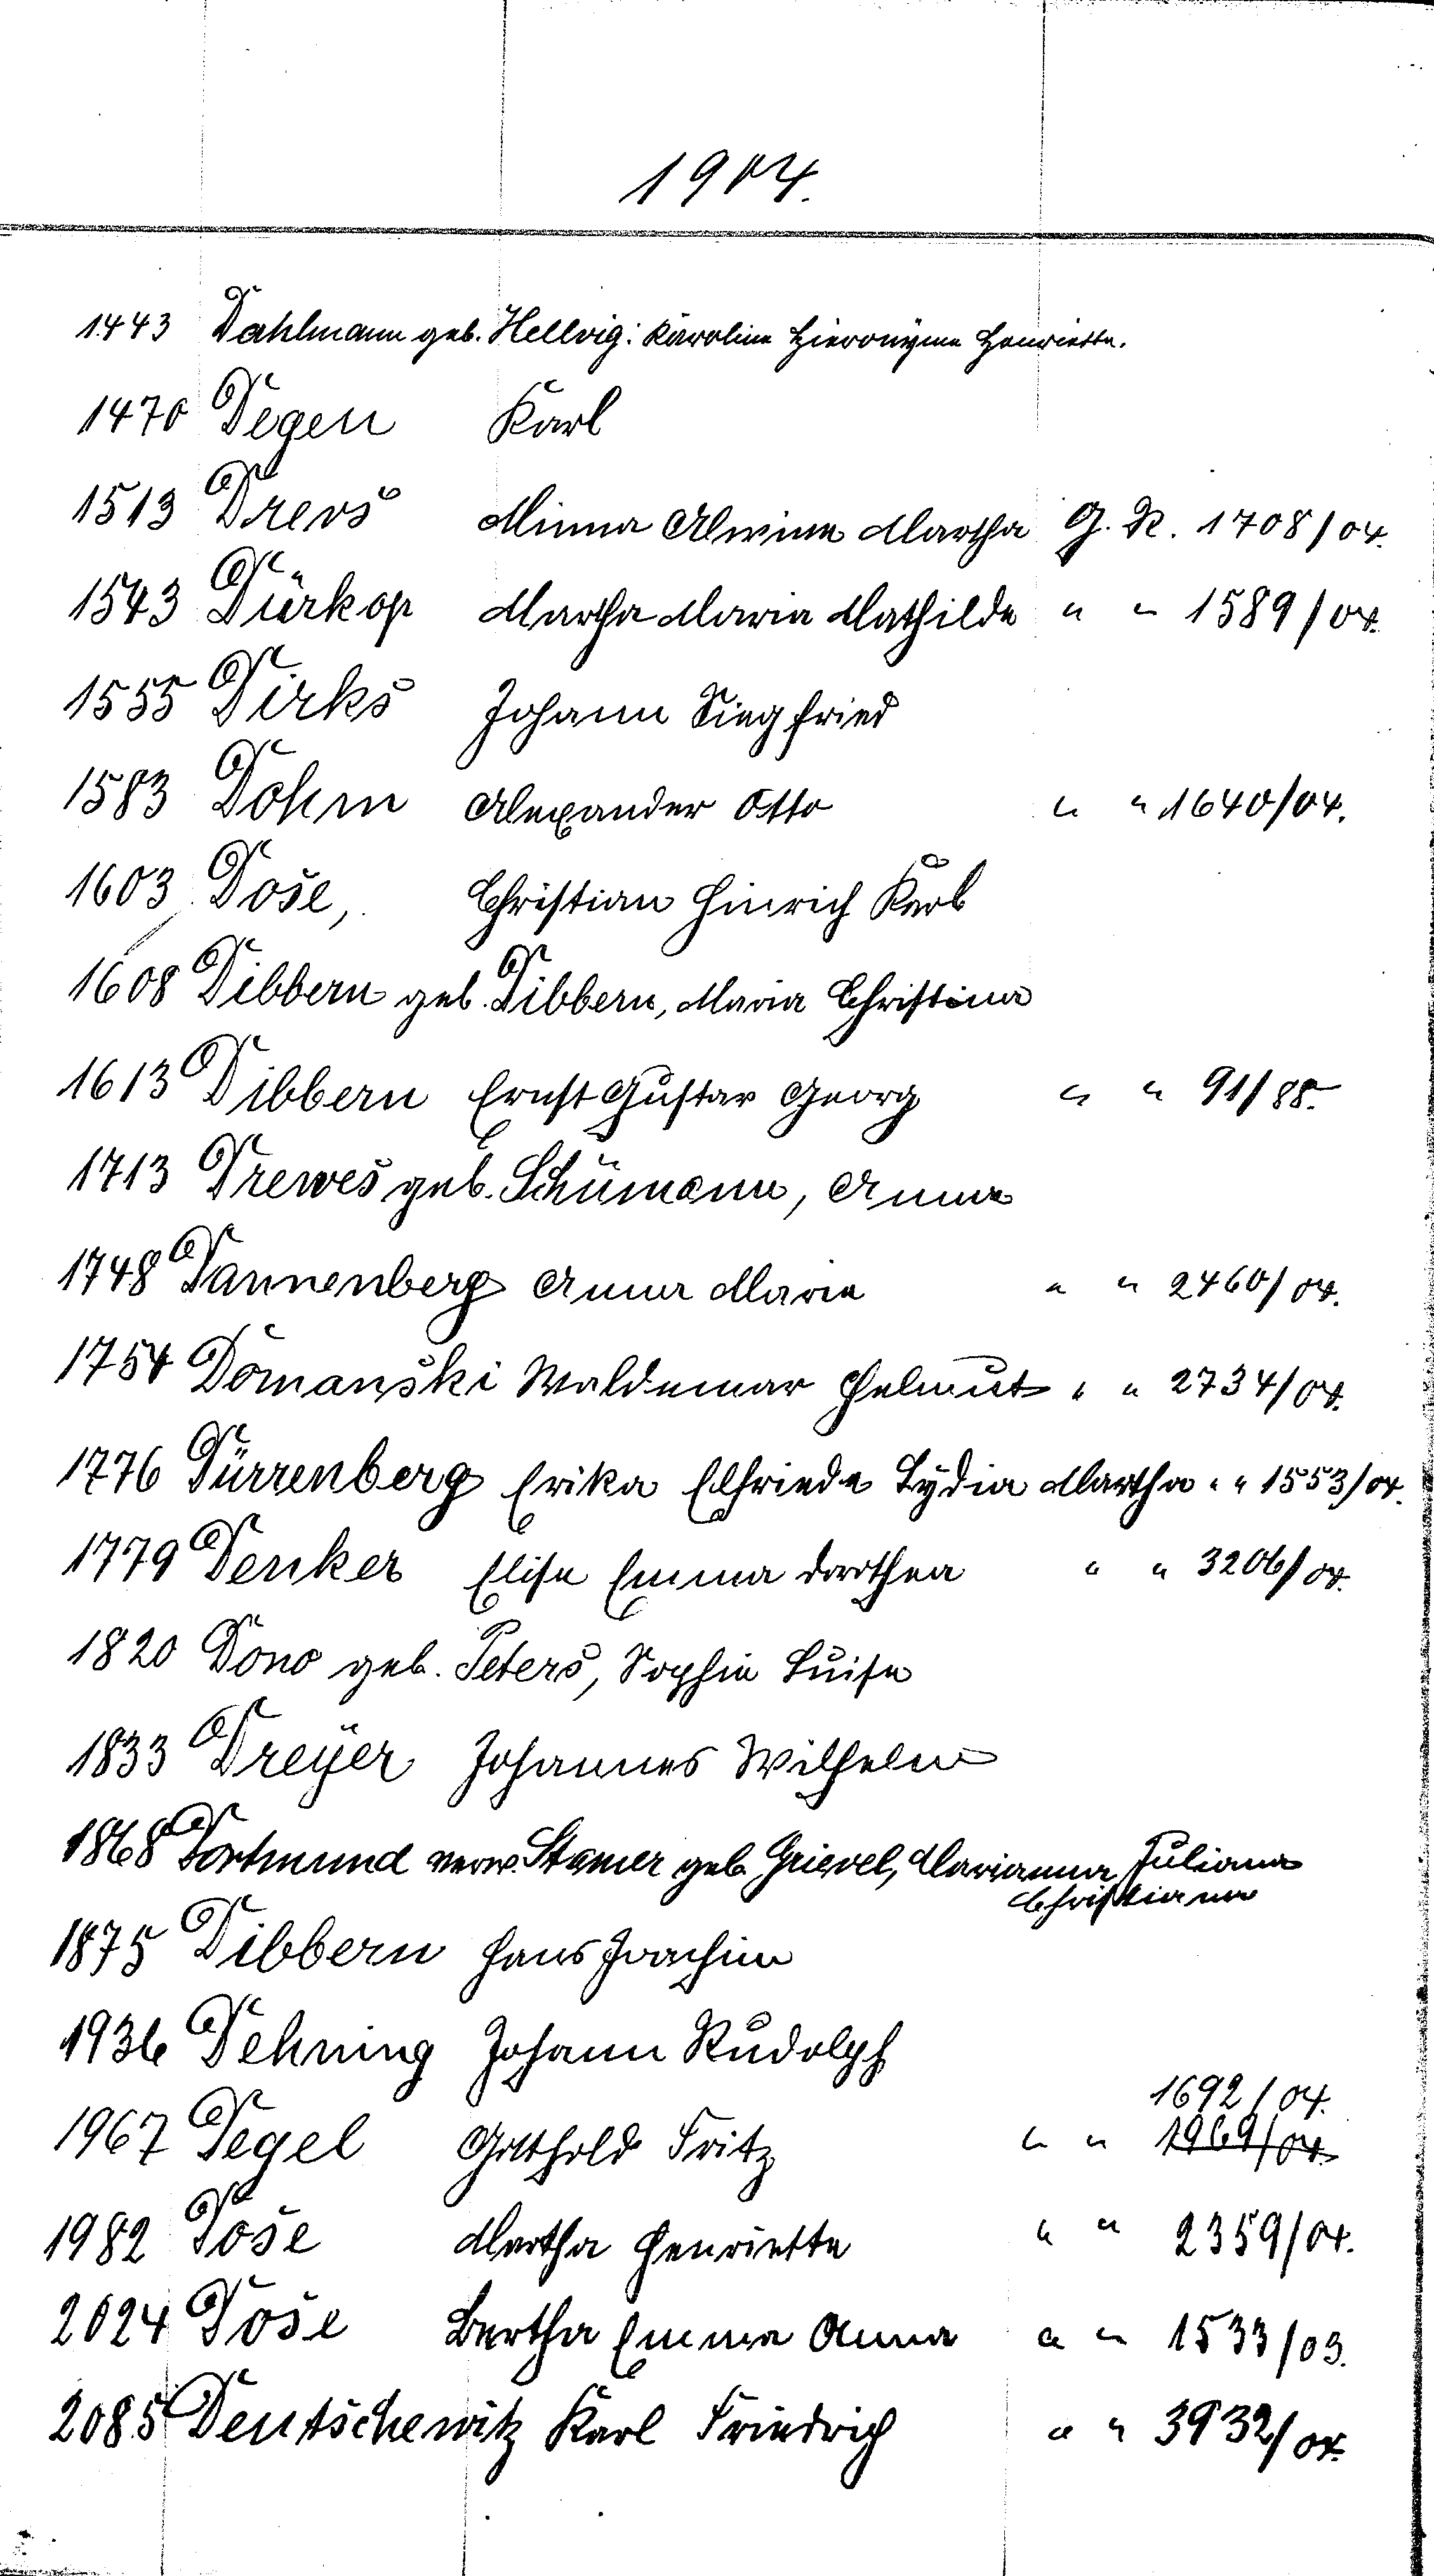 1904.
1443 Dahlmann geb. Hellvig: Karoline Hieronÿme Henriette.
1470 Degen Karl
1513 Drevs Minna Alwine Martha G. R. 1708/04.
1543 Dürkop Martha Maria Mathilde " " 1589/04.
1555 Dirks Johann Siegfried
1583 Dohm Alexander Otto " " 1640/04.
1603 Dose, Christian Hinrich Karl
1608 Dibbern geb. Dibbern, Maria Christina
1613 Dibbern Ernst Gustav Georg " " 91/88.
1713 Drewes geb. Schümann, Anna
1748 Dannenberg Anna Maria " " 2460/04.
1754 Domanski Waldemar Helmut " " 2734/04.
1776 Dürrenberg Erika Elfriede Lÿdia Martha " " 1553/04.
1779 Denker Elise Emma Dorothea " " 3206/04.
1820 Dono geb. Peters, Sophie Luise
1833 Dreÿer Johannes Wilhelm
1868 Dortmund verw. Stamer geb. Grievel, Marianna Juliana
Christiana
1875 Dibbern Hans Joachim
1936 Dehning Johann Rudolph
1692/04.
1967 Degel Gotthold Fritz " " 1969/04.
1982 Dose Martha Henriette " " 2359/04.
2024 Dose Bertha Emma Anna " " 1533/03.
2085 Deutschewitz Karl Friedrich " " 3932/04.